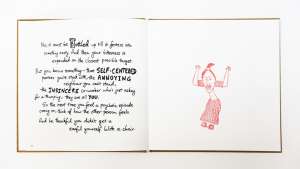 This it must be Bottled up till it festers into
something nasty And then your bitterness is
expended on the closest possible target
But you know something - that SELF-CENTERED
person you're stuck with, the ANNOYING
neighbour you can't stand,
the INSINCERE co-worker who's just asking
for a thumping. They are all YOU.
So the next time you feel a psychotic episode
coming on, think of how the other person feels
And be thankful you didn't get a
eyeful yourself With a chair